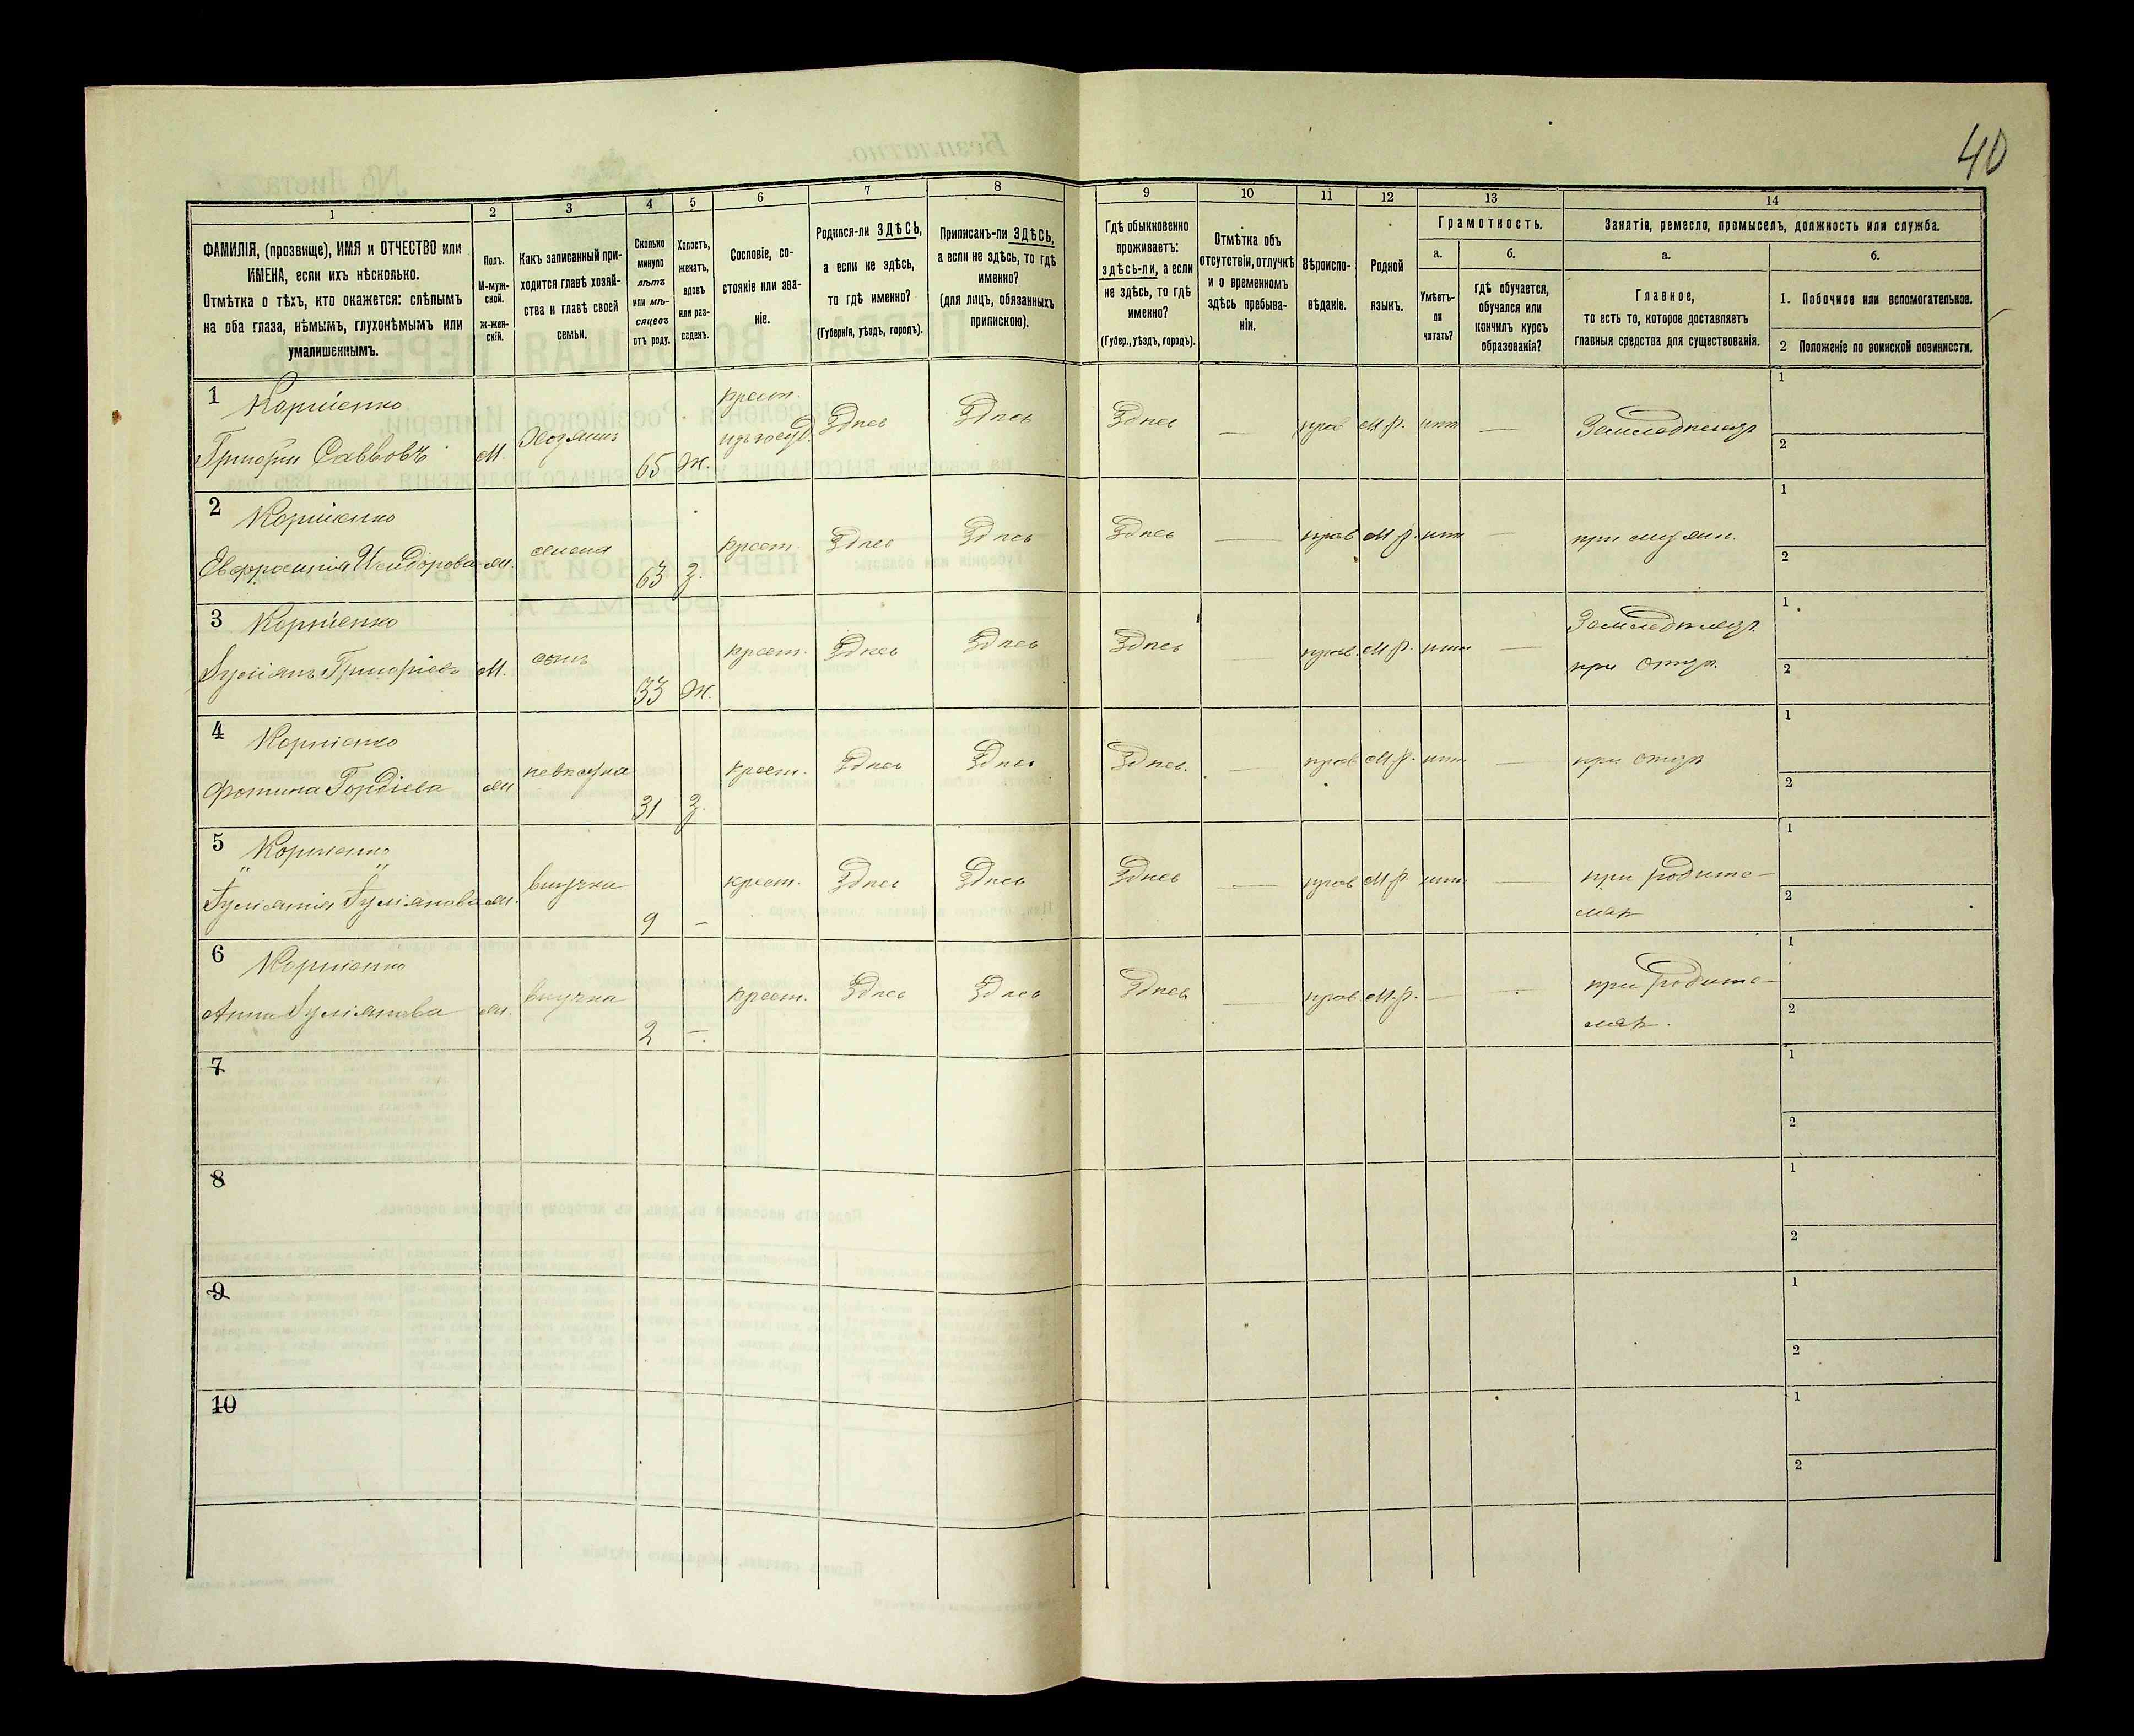 40
1
2
3
4
5
6
7
8
9
10
11
12
13
14
ФАМИЛІЯ, (прозвище), ИМЯ и ОТЧЕСТВО или
ИМЕНА, если ихъ нѣсколько.
Отмѣтка о тѣхъ, кто окажется: слѣпымъ
на оба глаза, нѣмымъ, глухонѣмымъ или
умалишеннымъ.
Полъ.
М-муж-
ской.
ж-жен-
скій.
Какъ записанный при-
ходится главѣ хозяй-
ства и главѣ своей
семьи.
Сколько
минуло
лѣтъ
или мѣ-
сяцевъ
отъ роду.
Холостъ,
женатъ,
вдовъ
или раз-
веденъ.
Сословіе, со-
стояніе или зва-
ніе.
Родился-ли ЗДѢСЬ,
а если не здѣсь,
то гдѣ именно?
(Губернія, уѣздъ, городъ).
Приписанъ-ли ЗДѢСЬ,
а если не здѣсь, то гдѣ
именно?
(для лицъ, обязанныхъ
припискою).
Гдѣ обыкновенно
проживаетъ:
здѣсь-ли, а если
не здѣсь, то гдѣ
именно?
(Губер., уѣздъ, городъ).
Отмѣтка объ
отсутствіи, отлучкѣ
и о временномъ
здѣсь пребыва-
ніи.
Вѣроиспо-
вѣданіе.
Родной
языкъ.
Грамотность.
а.
Умѣетъ-
ли
читать?
б.
гдѣ обучается,
обучался или
кончилъ курсъ
образованія?
Занятія, ремесло, промыселъ, должность или служба.
а.
Главное,
то есть то, которое доставляетъ
главныя средства для существованія.
б.
1. Побочное или вспомогательное.
2 Положеніе по воинской повинности.
1 Корніенко
Григорій Саввовъ
М.
Хозяинъ
65
Ж.
крест.
изъ госуд.
Здѣсь
Здѣсь
Здѣсь
—
прав
М.р.
нѣтъ
—
Земледѣлецъ
1
2
2 Корніенко
Евфросинія Исидорова
ж.
жена
63
З.
крест.
Здѣсь
Здѣсь
Здѣсь
—
прав
М.р.
нѣтъ
—
при мужѣ
1
2
3 Корніенко
Лукіянъ Григорьевъ
М.
сынъ
33
Ж.
крест.
Здѣсь
Здѣсь
Здѣсь
—
прав.
М.р.
нѣтъ
—
Земледѣлецъ
при отцѣ
1
2
4 Корніенко
Фотина Гордіева
ж
невѣстка
31
З.
крест.
Здѣсь
Здѣсь
Здѣсь.
—
прав
М.р.
нѣтъ
—
при отцѣ
1
2
5 Корніенко
Лукіянова
ж.
внучка
9
—
крест.
Здѣсь
Здѣсь
Здѣсь
—
прав
М.р.
нѣтъ
—
при родите-
ляхъ
1
2
6 Корніенко
Анна Лукіянова
ж.
внучка
2
—.
крест.
Здѣсь
Здѣсь
Здѣсь
—
прав.
М.р.
—
—
при родите-
ляхъ.
1
2
7
1
2
8
1
2
9
1
2
10
1
2